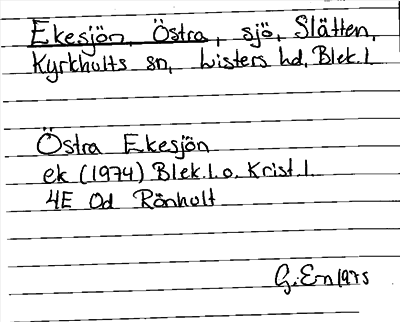 Ekesjön, Östra, sjö, Slätten,
Kyrkhults sn, Listers hd, Blek.l.
Östra Ekesjön
ek (1974) Blek.l.o. Krist.l.
4E Od Rönhult
G.Ern 1975